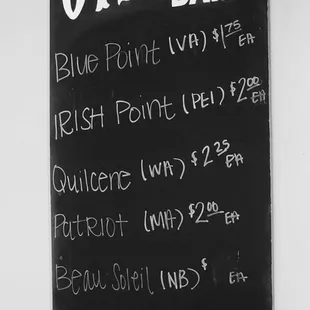 Blue Point (VA) $1.75 EA
IRISH Point (PEI) $2.00 EA
Quilcene (WA) $2.25 EA
PATRIOT (MA) $2.00 EA
Beau Soleil (NB) $ EA